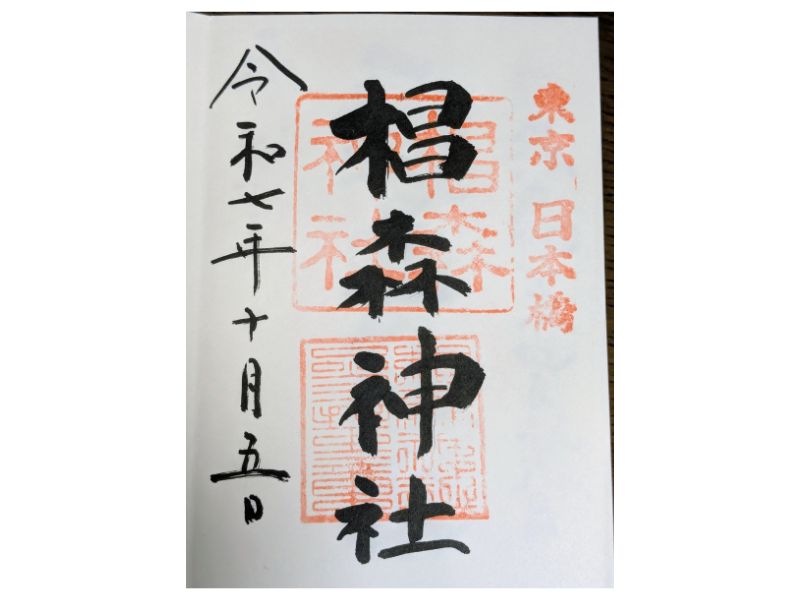 東京 日本橋
椙森神社
椙森
神社
令和七年十月五日